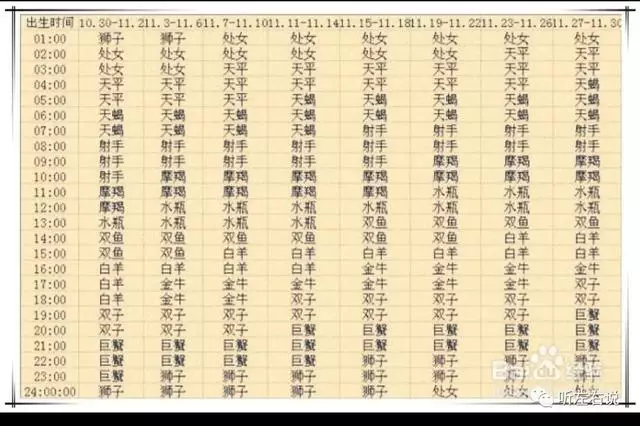 出生时间 10.30-11.2 11.3-11.6 11.7-11.10 11.11-11.14 11.15-11.18 11.19-11.22 11.23-11.26 11.27-11.30
01:00 狮子 狮子 处女 处女 处女 处女 处女 处女
02:00 处女 处女 处女 处女 处女 处女 天平 天平
03:00 处女 处女 天平 天平 天平 天平 天平 天平
04:00 天平 天平 天平 天平 天平 天平 天平 天蝎
05:00 天平 天平 天平 天蝎 天蝎 天蝎 天蝎 天蝎
06:00 天蝎 天蝎 天蝎 天蝎 天蝎 天蝎 天蝎 天蝎
07:00 天蝎 天蝎 天蝎 天蝎 射手 射手 射手 射手
08:00 射手 射手 射手 射手 射手 射手 射手 射手
09:00 射手 射手 射手 射手 射手 摩羯 摩羯 摩羯
10:00 射手 摩羯 摩羯 摩羯 摩羯 摩羯 摩羯 摩羯
11:00 摩羯 摩羯 摩羯 摩羯 摩羯 水瓶 水瓶 水瓶
12:00 摩羯 水瓶 水瓶 水瓶 水瓶 水瓶 水瓶 水瓶
13:00 水瓶 水瓶 水瓶 水瓶 双鱼 双鱼 双鱼 双鱼
14:00 双鱼 双鱼 双鱼 双鱼 双鱼 双鱼 白羊 白羊
15:00 双鱼 双鱼 白羊 白羊 白羊 白羊 白羊 金牛
16:00 白羊 白羊 白羊 白羊 金牛 金牛 金牛 金牛
17:00 白羊 金牛 金牛 金牛 金牛 金牛 金牛 双子
18:00 白羊 金牛 金牛 双子 双子 双子 双子 双子
19:00 双子 双子 双子 双子 双子 双子 双子 巨蟹
20:00 双子 双子 双子 巨蟹 巨蟹 巨蟹 巨蟹 巨蟹
21:00 巨蟹 巨蟹 巨蟹 巨蟹 巨蟹 巨蟹 巨蟹 巨蟹
22:00 巨蟹 巨蟹 巨蟹 巨蟹 狮子 狮子 狮子 狮子
23:00 巨蟹 狮子 狮子 狮子 狮子 狮子 狮子 狮子
24:00:00 狮子 狮子 狮子 狮子 狮子 处女 处女 处女
听左右说